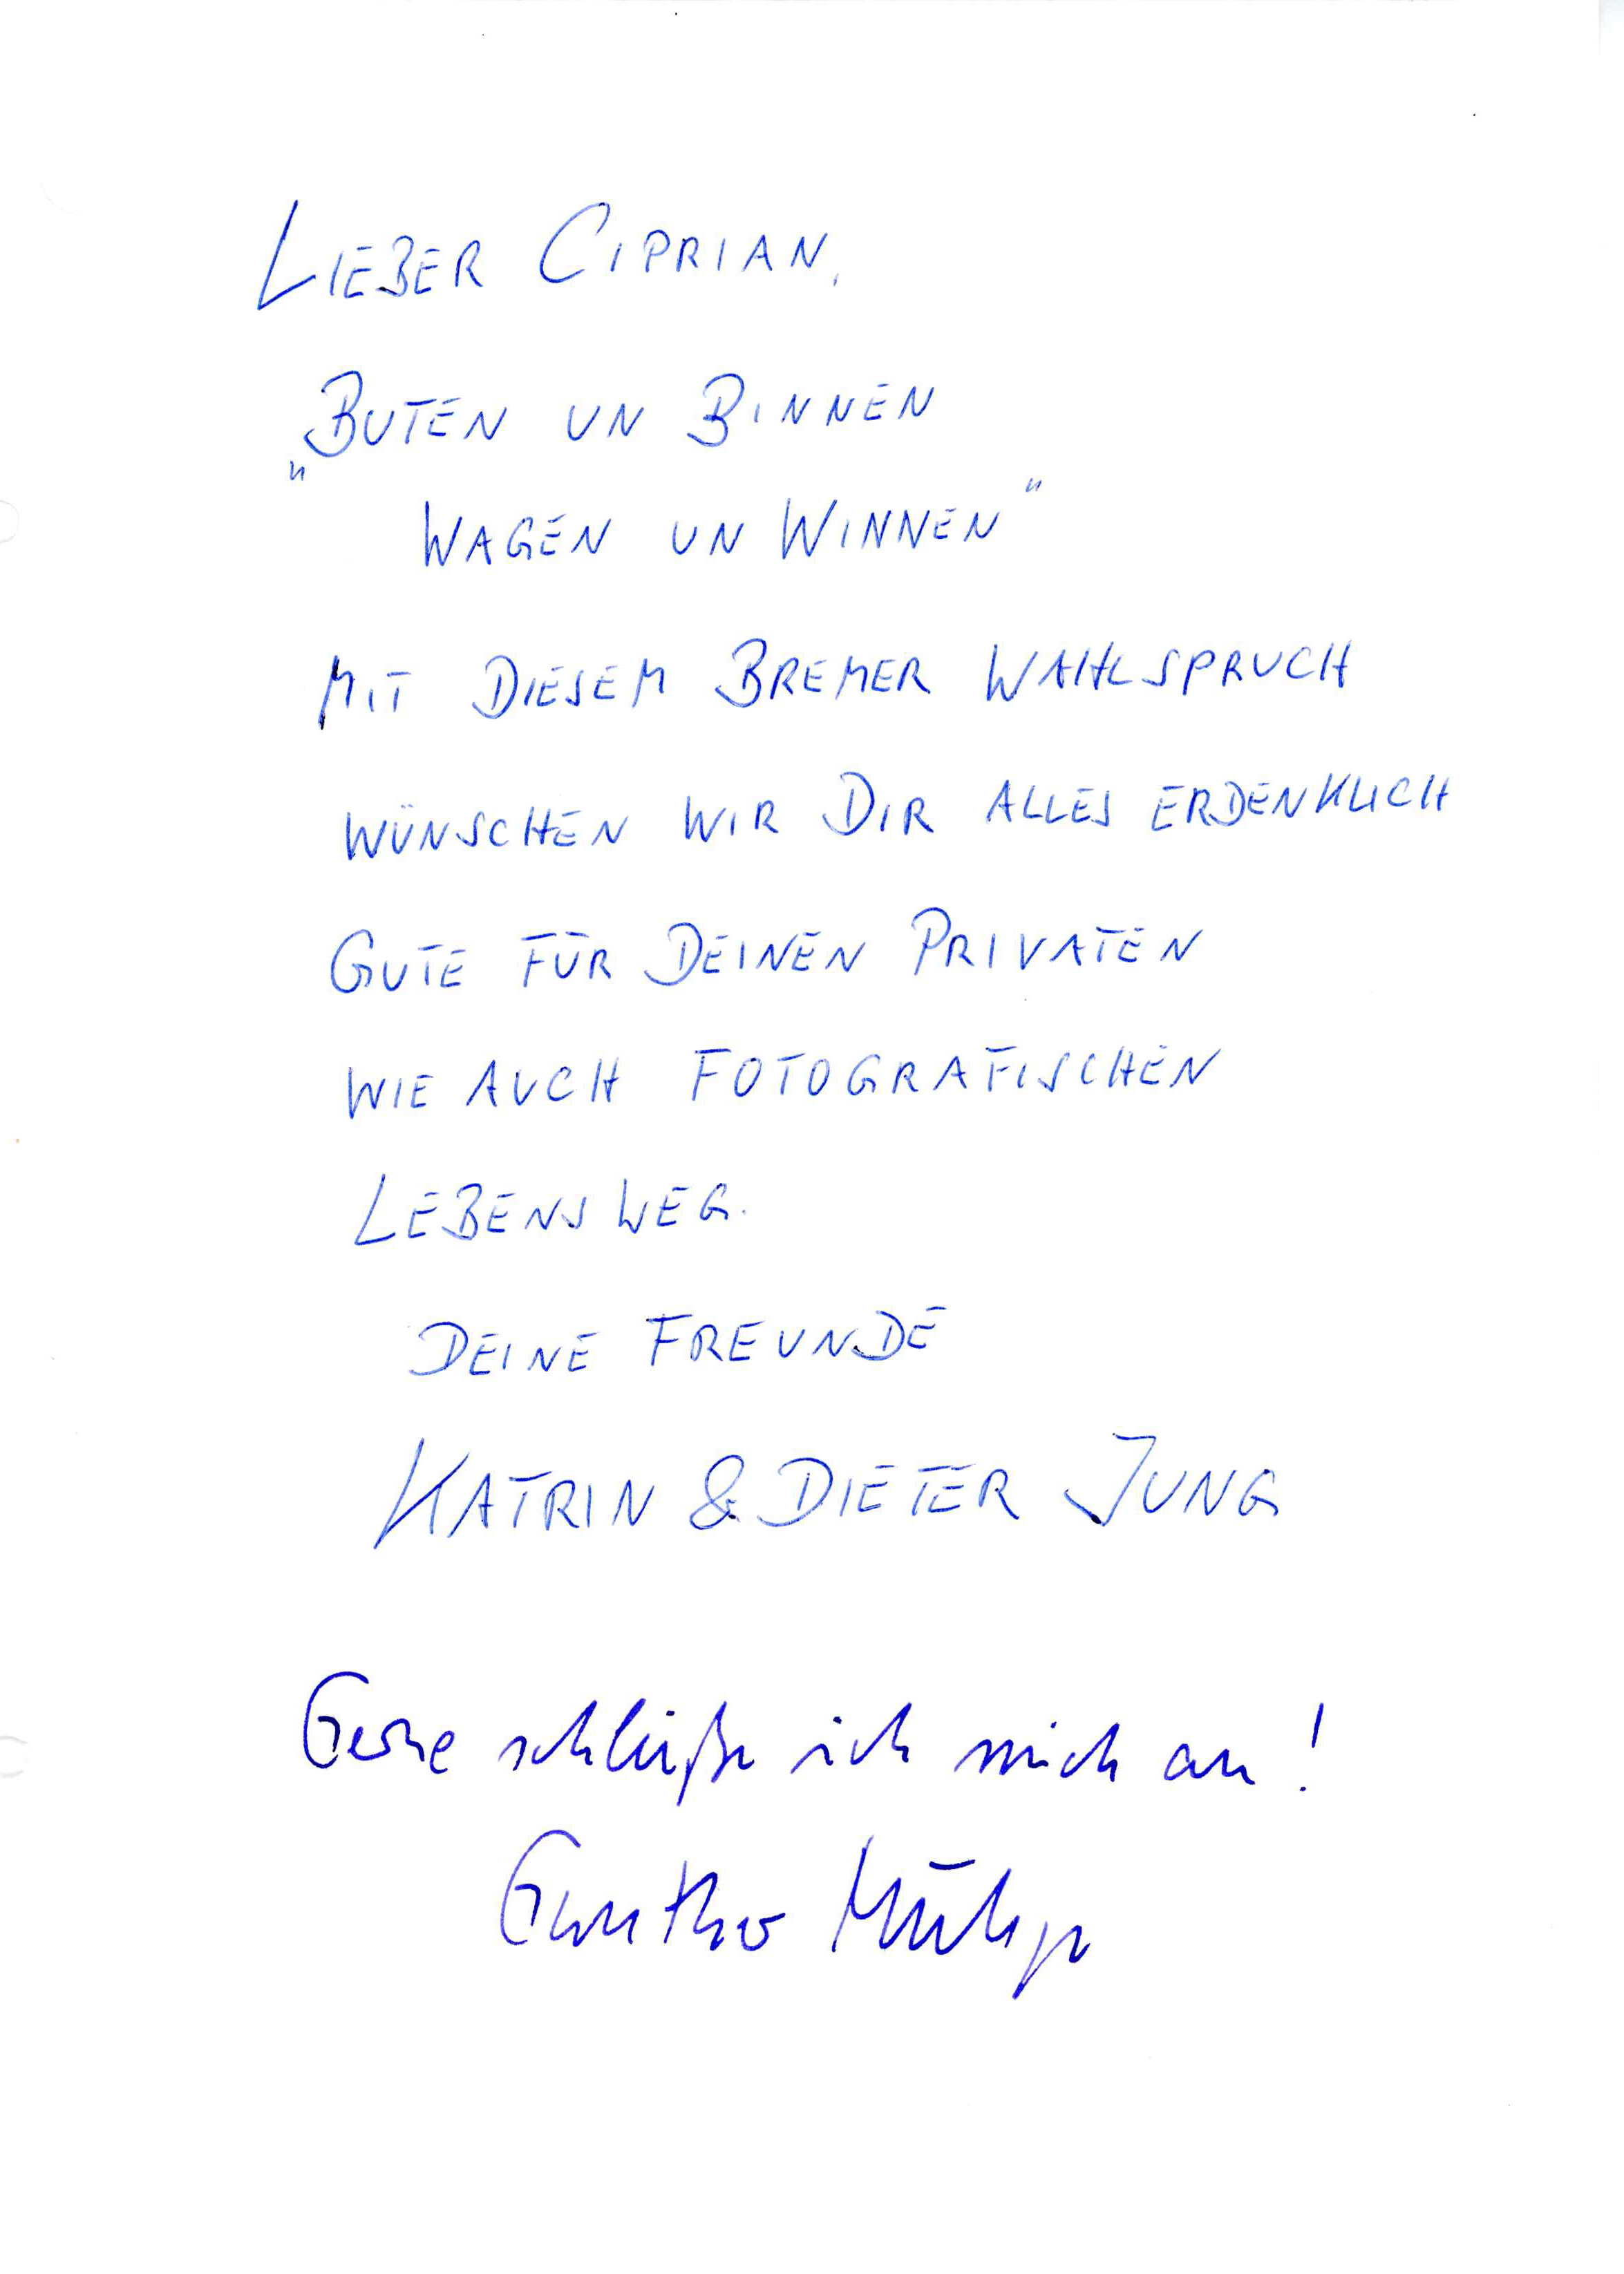 LIEBER CIPRIAN,
„BUTEN UN BINNEN
WAGEN UN WINNEN“
MIT DIESEM BREMER WAHLSPRUCH
WÜNSCHEN WIR DIR ALLES ERDENKLICH
GUTE FÜR DEINEN PRIVATEN
WIE AUCH FOTOGRAFISCHEN
LEBENSWEG.
DEINE FREUNDE
KATRIN & DIETER JUNG
Gerne schließe ich mich an!